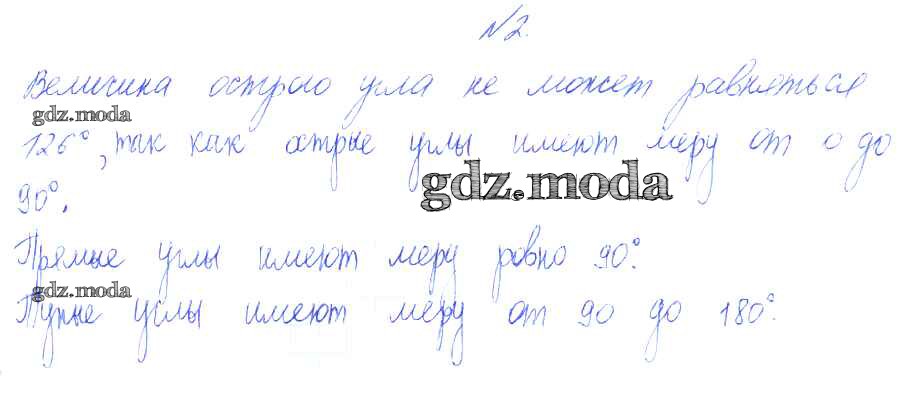 №2.
Величина острого угла не может равняться
gdz.moda
126°, так как острые углы имеют меру от 0 до
gdz.moda
90°.
Прямые углы имеют меру ровно 90°.
gdz.moda
Тупые углы имеют меру от 90 до 180°.